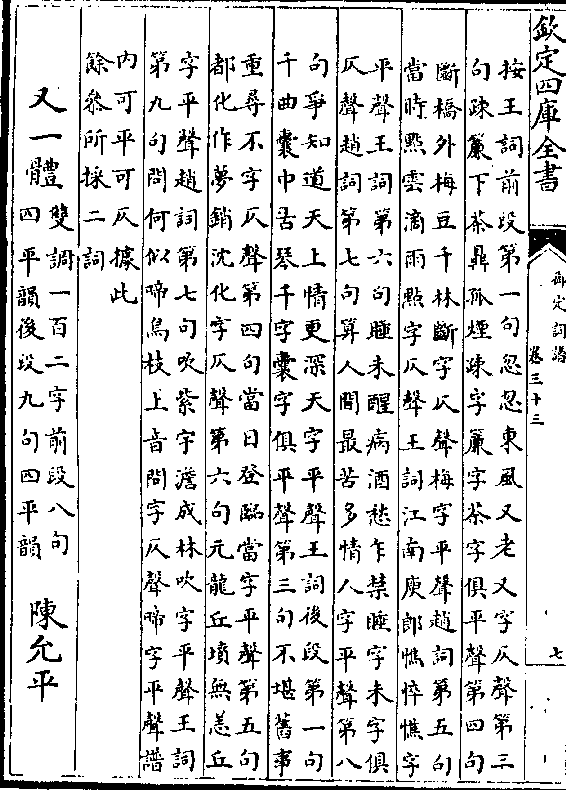 欽定四庫全書
御定詞譜
卷三十三
七
按王詞前段第一句忽忽東風又老又字仄聲第三
句疎簾下茶鼎孤煙疎字簾字茶字俱平聲第四句
斷橋外梅豆千林斷字仄聲梅字平聲趙詞第五句
當時點雲滴雨點字仄聲王詞江南庾郎憔悴憔字
平聲王詞第六句睡未醒病酒愁乍禁睡字未字俱
仄聲趙詞第七句算人間最苦多情人字平聲第八
句爭知道天上情更深天字平聲王詞後段第一句
千曲囊中古琴千字囊字俱平聲第三句不堪舊事
重尋不字仄聲第四句當日登臨當字平聲第五句
都化作夢銷沈化字仄聲第六句元龍丘墳無恙丘
字平聲趙詞第七句吹紫宇澹成林吹字平聲王詞
第九句問何似啼烏枝上音問字仄聲啼字平聲譜
內可平可仄據此
餘參所採二詞
又一體
雙調一百二字前段八句
四平韻後段九句四平韻
陳允平